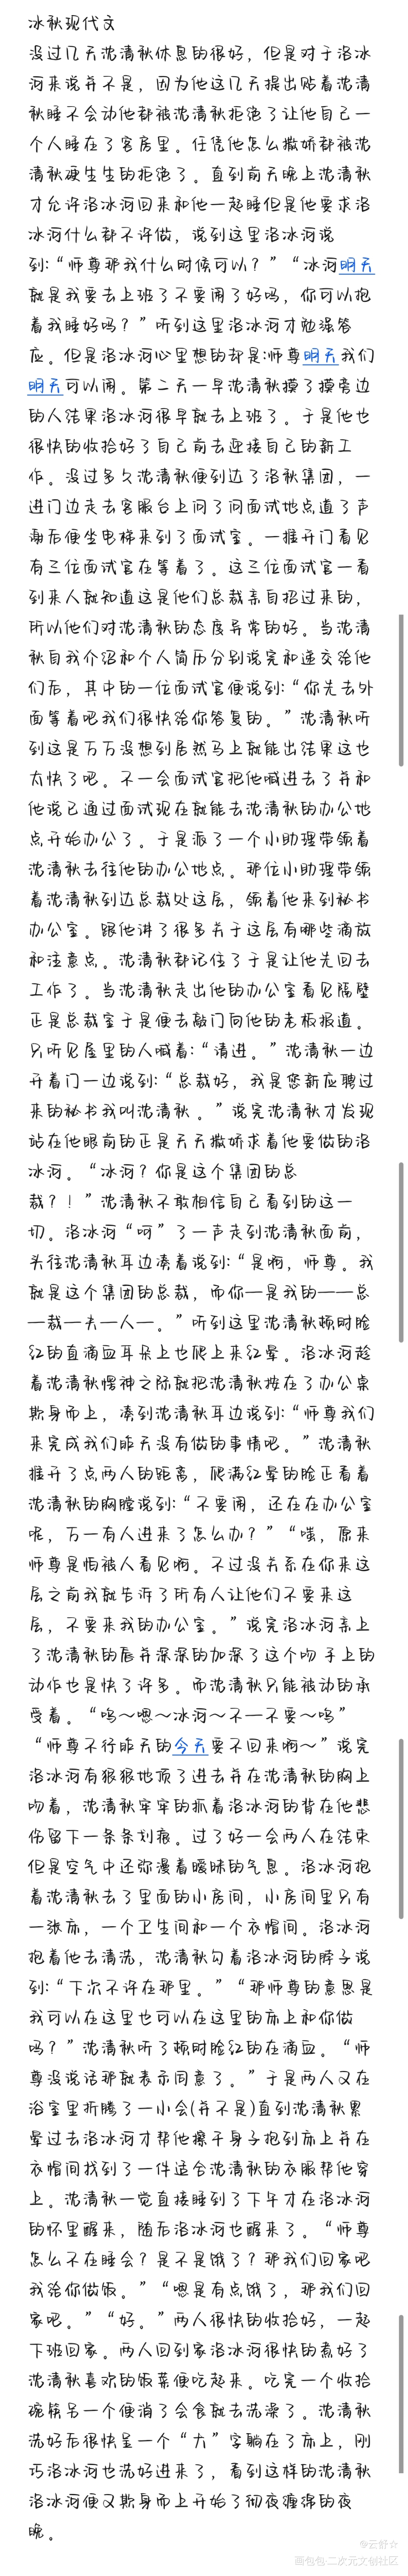 冰秋现代文
没过几天沈清秋休息的很好，但是对于洛冰
河来说并不是，因为他这几天提出贴着沈清
秋睡不会动他都被沈清秋拒绝了让他自己一
个人睡在了客房里。任凭他怎么撒娇都被沈
清秋硬生生的拒绝了。直到前天晚上沈清秋
才允许洛冰河回来和他一起睡但是他要求洛
冰河什么都不许做，说到这里洛冰河说
到:“师尊那我什么时候可以？”“冰河明天
就是我要去上班了不要闹了好吗，你可以抱
着我睡好吗？”听到这里洛冰河才勉强答
应。但是洛冰河心里想的却是:师尊明天我们
明天可以闹。第二天一早沈清秋摸了摸旁边
的人结果洛冰河很早就去上班了。于是他也
很快的收拾好了自己前去迎接自己的新工
作。没过多久沈清秋便到达了洛秋集团，一
进门边走去客服台上问了问面试地点道了声
谢后便坐电梯来到了面试室。一推开门看见
有三位面试官在等着了。这三位面试官一看
到来人就知道这是他们总裁亲自招过来的，
所以他们对沈清秋的态度异常的好。当沈清
秋自我介绍和个人简历分别说完和递交给他
们后，其中的一位面试官便说到:“你先去外
面等着吧我们很快给你答复的。”沈清秋听
到这是万万没想到居然马上就能出结果这也
太快了吧。不一会面试官把他喊进去了并和
他说已通过面试现在就能去沈清秋的办公地
点开始办公了。于是派了一个小助理带领着
沈清秋去往他的办公地点。那位小助理带领
着沈清秋到边总裁处这层，领着他来到秘书
办公室。跟他讲了很多关于这层有哪些滴放
和注意点。沈清秋都记住了于是让他先回去
工作了。当沈清秋走出他的办公室看见隔壁
正是总裁室于是便去敲门向他的老板报道。
只听见屋里的人喊着:“请进。”沈清秋一边
开着门一边说到:“总裁好，我是您新应聘过
来的秘书我叫沈清秋。”说完沈清秋才发现
站在他眼前的正是天天撒娇求着他要做的洛
冰河。“冰河？你是这个集团的总
裁？！”沈清秋不敢相信自己看到的这一
切。洛冰河“呵”了一声走到沈清秋面前，
头往沈清秋耳边凑着说到:“是啊，师尊。我
就是这个集团的总裁，而你一是我的一一总
一裁一夫一人一。”听到这里沈清秋顿时脸
红的直滴血耳朵上也爬上来红晕。洛冰河趁
着沈清秋愣神之际就把沈清秋按在了办公桌
欺身而上，凑到沈清秋耳边说到:“师尊我们
来完成我们昨天没有做的事情吧。”沈清秋
推开了点两人的距离，爬满红晕的脸正看着
沈清秋的胸膛说到:“不要闹，还在在办公室
呢，万一有人进来了怎么办？”“嗤，原来
师尊是怕被人看见啊。不过没关系在你来这
层之前我就告诉了所有人让他们不要来这
层，不要来我的办公室。”说完洛冰河亲上
了沈清秋的唇并深深的加深了这个吻手上的
动作也是快了许多。而沈清秋只能被动的承
受着。“呜～嗯～冰河～不一不要～呜”
“师尊不行昨天的今天要不回来啊～”说完
洛冰河有狠狠地顶了进去并在沈清秋的胸上
吻着，沈清秋牢牢的抓着洛冰河的背在他悲
伤留下一条条划痕。过了好一会两人在结束
但是空气中还弥漫着暧昧的气息。洛冰河抱
着沈清秋去了里面的小房间，小房间里只有
一张床，一个卫生间和一个衣帽间。洛冰河
抱着他去清洗，沈清秋勾着洛冰河的脖子说
到:“下次不许在那里。”“那师尊的意思是
我可以在这里也可以在这里的床上和你做
吗？”沈清秋听了顿时脸红的在滴血。“师
尊没说话那就表示同意了。”于是两人又在
浴室里折腾了一小会(并不是)直到沈清秋累
晕过去洛冰河才帮他擦干身子抱到床上并在
衣帽间找到了一件适合沈清秋的衣服帮他穿
上。沈清秋一觉直接睡到了下午才在洛冰河
的怀里醒来，随后洛冰河也醒来了。“师尊
怎么不在睡会？是不是饿了？那我们回家吧
我给你做饭。”“嗯是有点饿了，那我们回
家吧。”“好。”两人很快的收拾好，一起
下班回家。两人回到家洛冰河很快的煮好了
沈清秋喜欢的饭菜便吃起来。吃完一个收拾
碗筷另一个便消了会食就去洗澡了。沈清秋
洗好后很快呈一个“大”字躺在了床上，刚
巧洛冰河也洗好进来了，看到这样的沈清秋
洛冰河便又欺身而上开始了彻夜缠绵的夜
晚。
@云舒☆
画包包·二次元文创社区